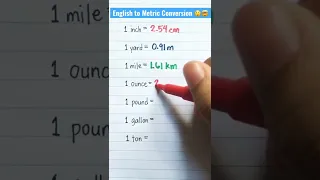 English to Metric Conversion
1 inch = 2.54 cm
1 yard = 0.91 m
1 mile = 1.61 km
1 ounce = 2
1 pound =
1 gallon =
1 ton =